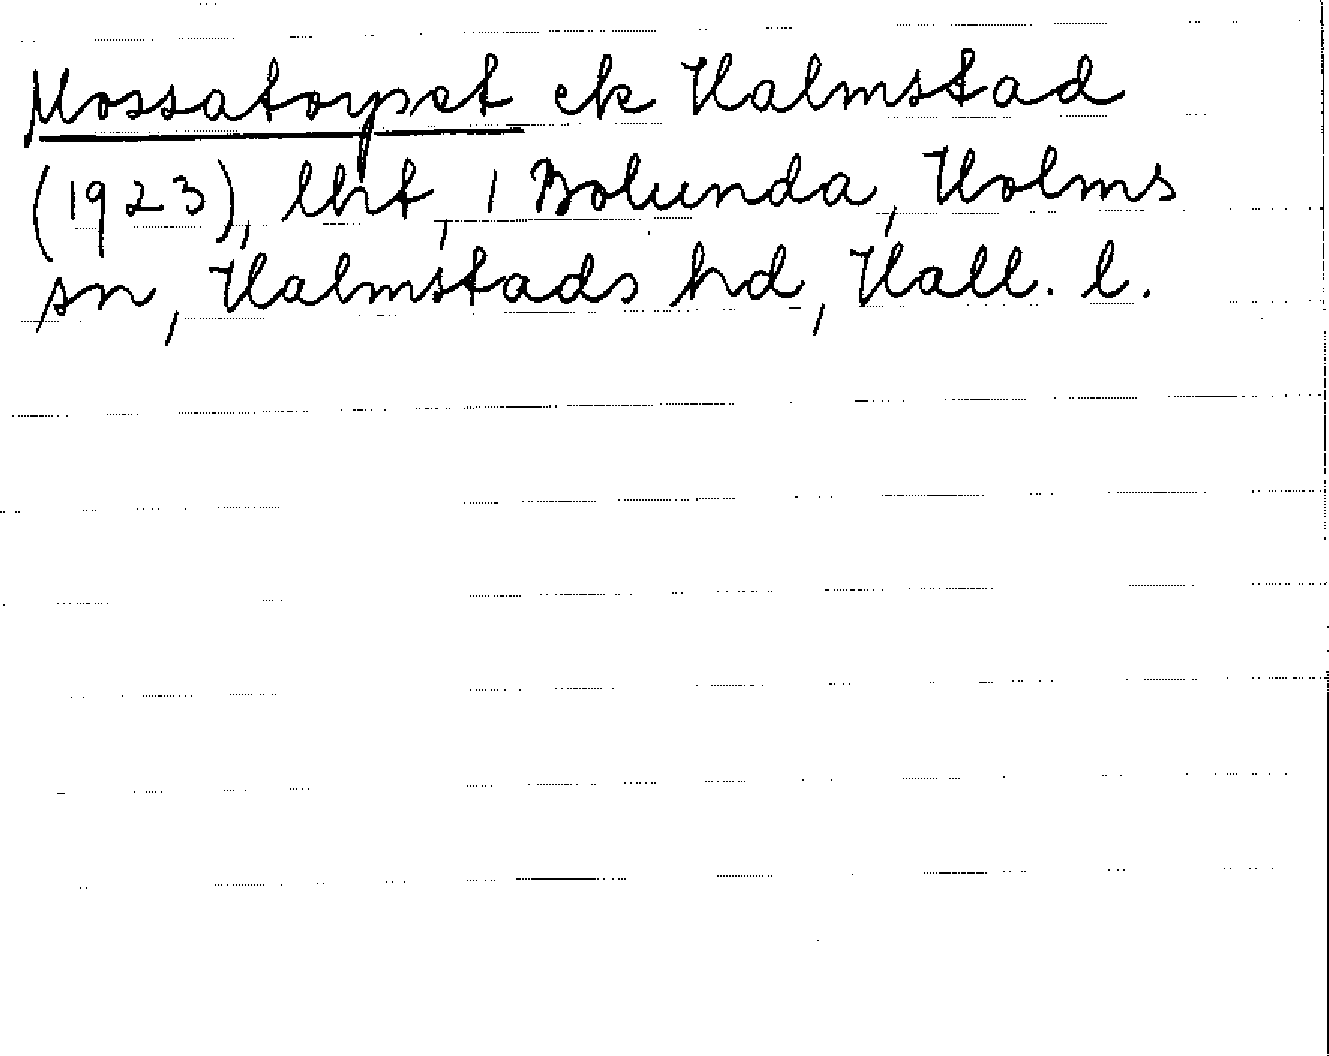 Mossatorpet ek Halmstad
(1923), lht, 1 Bolunda, Holms
sn, Halmstads hd, Hall. l.